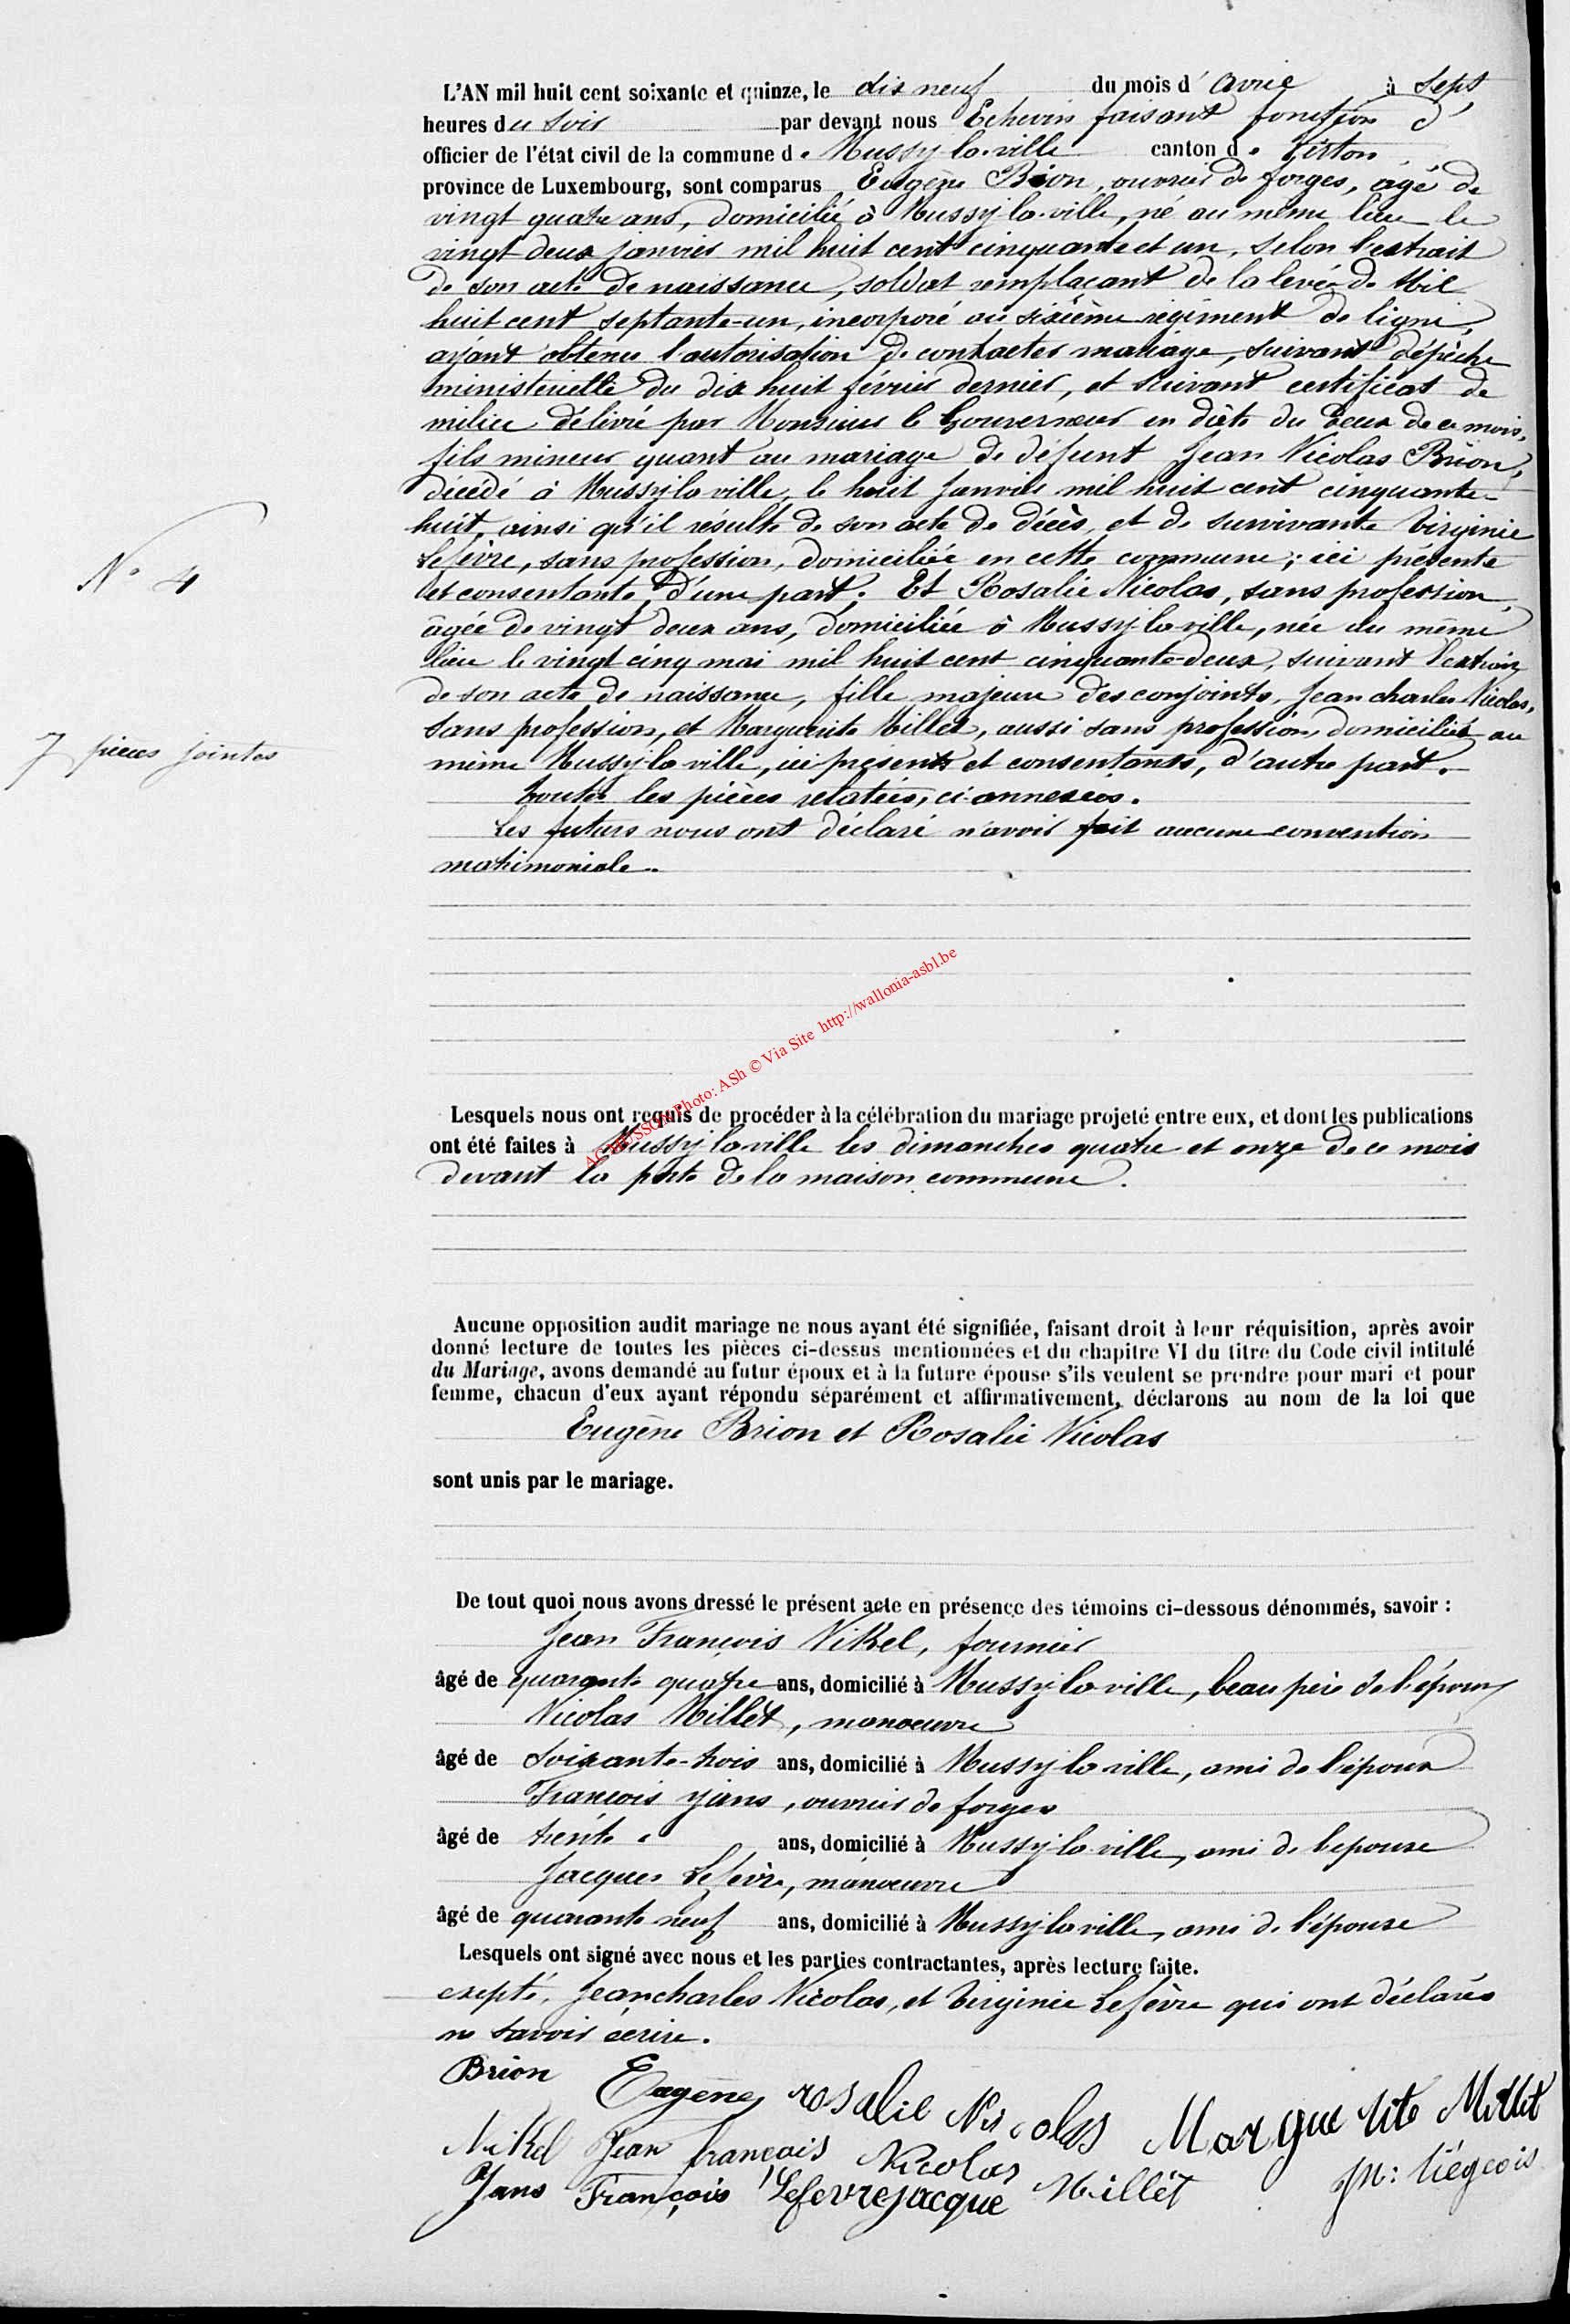 L'AN mil huit cent soixante et quinze, le dix neuf du mois d'avril à sept
heures du soir par devant nous Echevin faisant fonction d'
officier de l'état civil de la commune de Mussy-la-ville canton de Virton
province de Luxembourg, sont comparus Eugène Brion, ouvrier de forges, âgé de
vingt quatre ans, domicilié à Mussy-la-ville, né au même lieu le
vingt deux janvier mil huit cent cinquante et un, selon l'extrait
de son acte de naissance, soldat remplaçant de la levée de Mil
huit cent septante-un, incorporé au sixième régiment de ligne,
ayant obtenu l'autorisation de contracter mariage, suivant dépêche
ministérielle du dix huit février dernier, et suivant certificat de
milice délivré par Monsieur le Gouverneur en date du deux de ce mois,
fils mineur quant au mariage de défunt Jean Nicolas Brion,
décédé à Mussy-la-ville, le huit Janvier mil huit cent cinquante-
huit, ainsi qu'il résulte de son acte de décès, et de survivante Virginie
Lefèvre, sans profession, domiciliée en cette commune; ici présente
N° 4
et consentante, d'une part; Et Rosalie Nicolas, sans profession,
âgée de vingt deux ans, domiciliée à Mussy-la-ville, née au même
lieu le vingt cinq mai mil huit cent cinquante-deux, suivant l'extrait
de son acte de naissance, fille majeure des conjoints, Jean charles Nicolas,
sans profession, et Marguerite Millet, aussi sans profession, domiciliés au
7 pièces jointes
même Mussy-la-ville, ici présents et consentants, d'autre part.
Toutes les pièces relatées, ci-annexées.
Les futurs nous ont déclaré n'avoir fait aucune convention
matrimoniale.
Photo: ASh © Via Site http://wallonia-asbl.be
Lesquels nous ont requis de procéder à la célébration du mariage projeté entre eux, et dont les publications
ont été faites à Mussy-la-ville les dimanches quatre et onze de ce mois
devant la porte de la maison commune.
Aucune opposition audit mariage ne nous ayant été signifiée, faisant droit à leur réquisition, après avoir
donné lecture de toutes les pièces ci-dessus mentionnées et du chapitre VI du titre du Code civil intitulé
du Mariage, avons demandé au futur époux et à la future épouse s'ils veulent se prendre pour mari et pour
femme, chacun d'eux ayant répondu séparément et affirmativement, déclarons au nom de la loi que
Eugène Brion et Rosalie Nicolas
sont unis par le mariage.
De tout quoi nous avons dressé le présent acte en présence des témoins ci-dessous dénommés, savoir :
Jean François Nikel, fournier
âgé de quarante quatre ans, domicilié à Mussy-la-ville, beau père de l'époux
Nicolas Millet, manoeuvre
âgé de soixante-trois ans, domicilié à Mussy-la-ville, ami de l'époux
François Yans, ouvrier de forges
âgé de trente ans, domicilié à Mussy-la-ville, ami de l'epouse
Jacques Lefèvre, manoeuvre
âgé de quarante neuf ans, domicilié à Mussy-la-ville, ami de l'épouse
Lesquels ont signé avec nous et les parties contractantes, après lecture faite.
excpté, Jean charles Nicolas, et Virginie Lefèvre qui ont déclarés
ne savoir écrire.
Brion Eugène rosalie Nicolas Marguerite Millet
Nikel Jean françois Nicolas Millet JN: Liégeois
Yans François Lefevre jacque